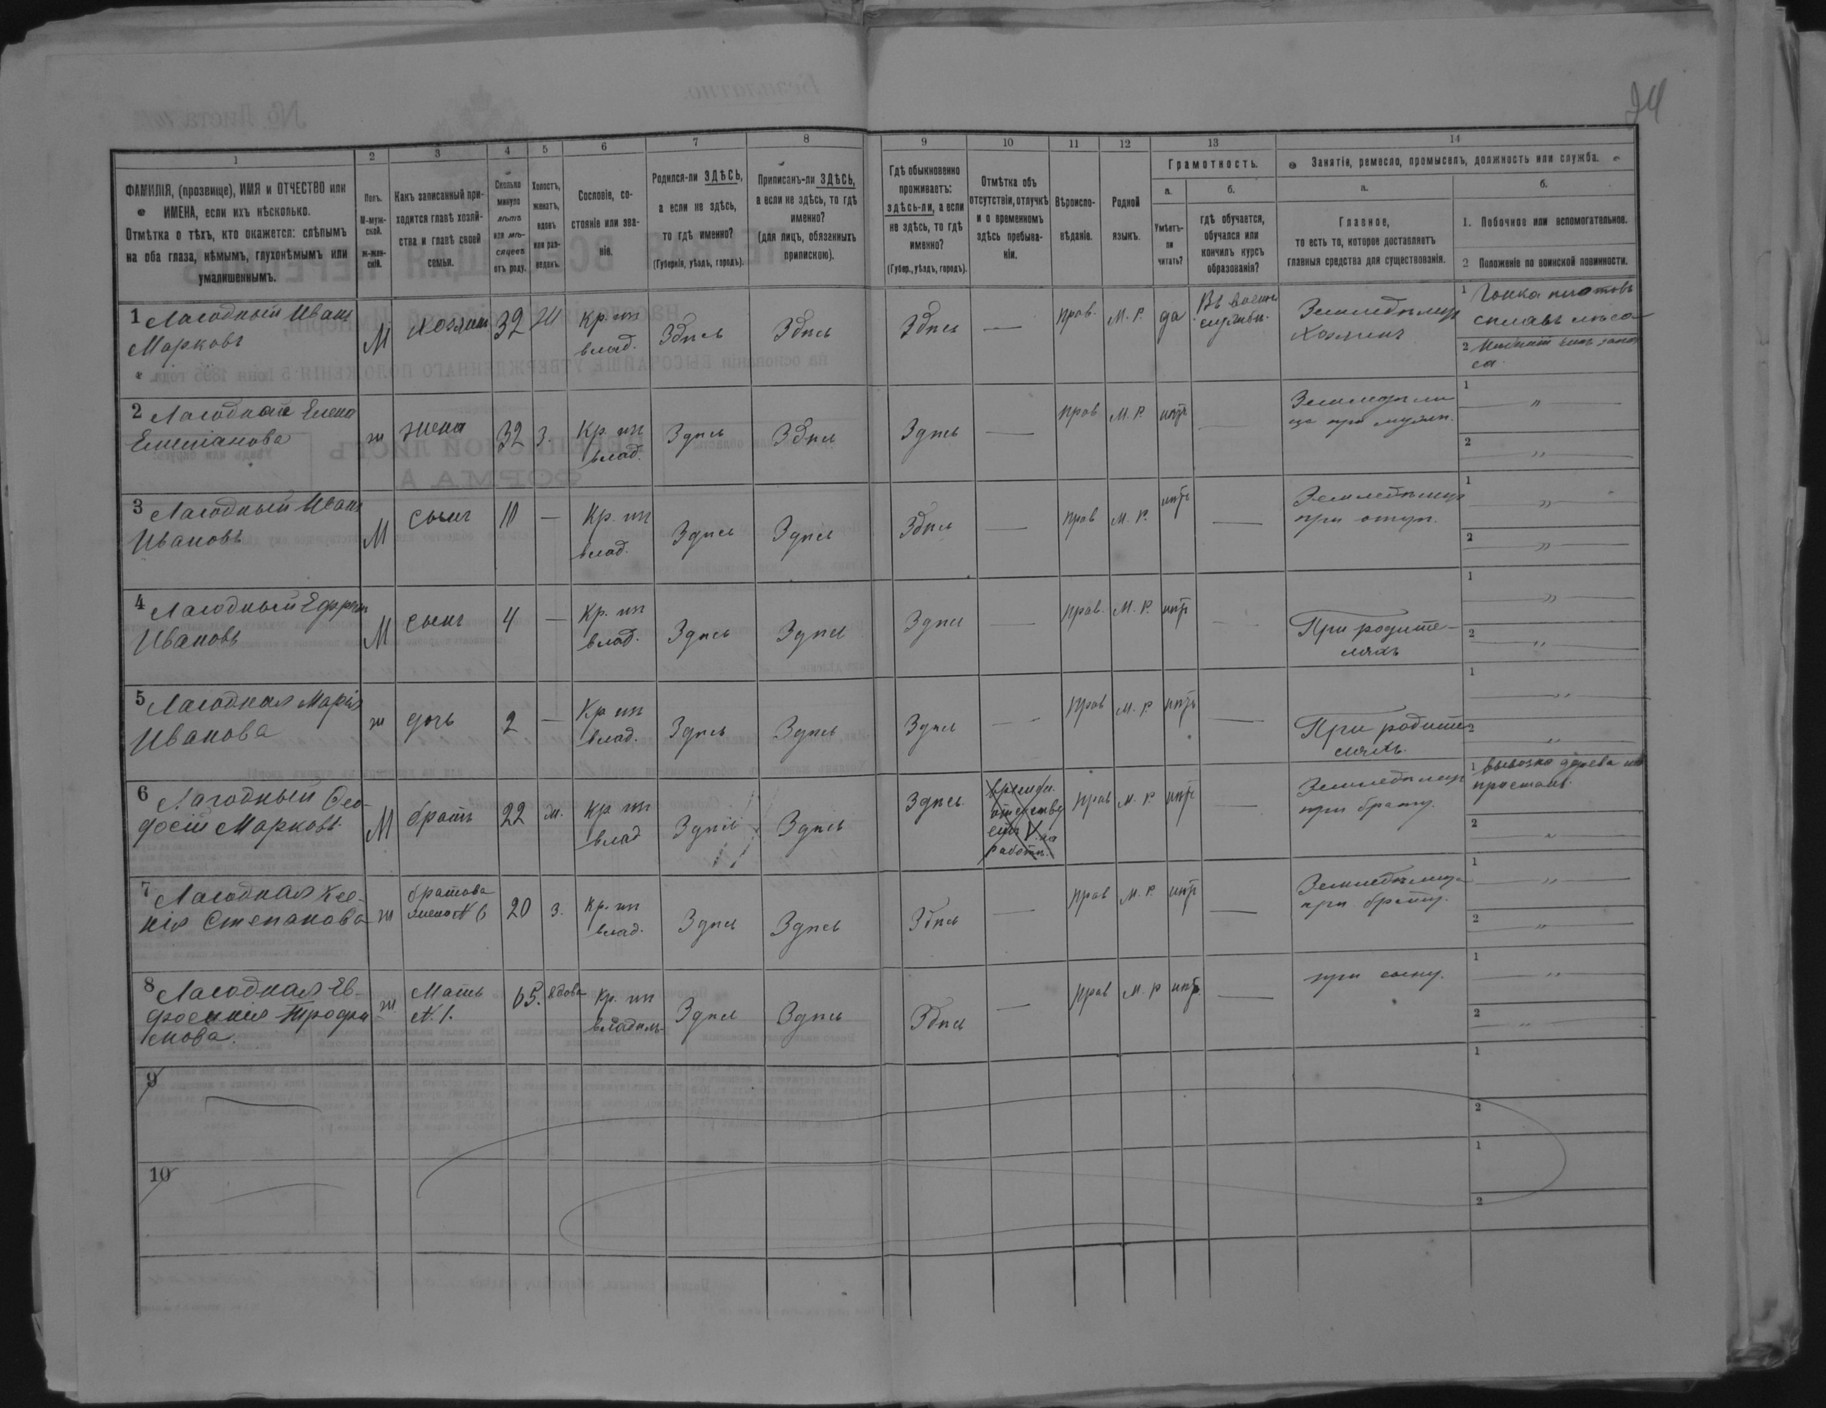 24
1 2 3 4 5 6 7 8 9 10 11 12 13 14
ФАМИЛІЯ, (прозвище), ИМЯ и ОТЧЕСТВО или
ИМЕНА, если ихъ нѣсколько.
Отмѣтка о тѣхъ, кто окажется: слѣпымъ
на оба глаза, нѣмымъ, глухонѣмымъ или
умалишеннымъ.
Полъ.
М-муж-
ской.
ж-жен-
скій.
Какъ записанный при-
ходится главѣ хозяй-
ства и главѣ своей
семьи.
Сколько
минуло
лѣтъ
или мѣ-
сяцевъ
отъ роду.
Холостъ,
женатъ,
вдовъ
или раз-
веденъ.
Сословіе, со-
стояніе или зва-
ніе.
Родился-ли ЗДѢСЬ,
а если не здѣсь,
то гдѣ именно?
(Губернія, уѣздъ, городъ).
Приписанъ-ли ЗДѢСЬ,
а если не здѣсь, то гдѣ
именно?
(для лицъ, обязанныхъ
припискою).
Гдѣ обыкновенно
проживаетъ:
здѣсь-ли, а если
не здѣсь, то гдѣ
именно?
(Губер., уѣздъ, городъ).
Отмѣтка объ
отсутствіи, отлучкѣ
и о временномъ
здѣсь пребыва-
ніи.
Вѣроиспо-
вѣданіе.
Родной
языкъ.
Грамотность.
а.
Умѣетъ-
ли
читать?
б.
гдѣ обучается,
обучался или
кончилъ курсъ
образованія?
Занятіе, ремесло, промыселъ, должность или служба.
а.
Главное,
то есть то, которое доставляетъ
главныя средства для существованія.
б.
1. Побочное или вспомогательное.
2 Положеніе по воинской повинности.
1 Лагодный Иванъ
Марковъ
М хозяинъ 32 Ж Кр. из
влад. Здѣсь Здѣсь Здѣсь — прав. М. Р. да Въ воен.
службѣ. Земледѣлецъ
Хозяинъ
1 Гонка плотовъ
сплавъ лѣса
2
2 Лагодная Елена
ж жена 32 З. Кр. из
влад. Здѣсь Здѣсь Здѣсь — прав М. Р. нѣтъ —
1 "
2 "
3 Лагодный Иванъ
Ивановъ
М сынъ — Кр. из
влад. Здѣсь Здѣсь Здѣсь — прав М. Р. нѣтъ —
при отцѣ.
1 "
2 "
4 Лагодный
Ивановъ
М сынъ 4 — Кр. из
влад. Здѣсь Здѣсь Здѣсь — прав. М. Р. нѣтъ —
При родите-
ляхъ
1 "
2 "
5 Лагодная Марія
Иванова
ж дочь 2 — Кр из
влад. Здѣсь Здѣсь Здѣсь — прав М. Р нѣтъ —
При родите
ляхъ
1 "
2 "
6 Лагодный Фео-
досій Марковъ
М братъ 22 Кр из
влад Здѣсь Здѣсь Здѣсь прав М. Р. нѣтъ —
при братѣ.
1 вывозка дерева на
пристань
2 "
7 Лагодная Ксе-
нія Степанова
ж братова
жена N 6 20 З. Кр. из
влад. Здѣсь Здѣсь Здѣсь — прав М. Р. нѣтъ —
при братѣ.
1 "
2 "
8 Лагодная Ев-
фросинія Трофи
мова.
ж Мать
N. 1. 65. вдова Кр. из
Здѣсь Здѣсь Здѣсь — прав М. Р нѣтъ —
при сыну.
1 "
2 "
9
1
2
10
1
2